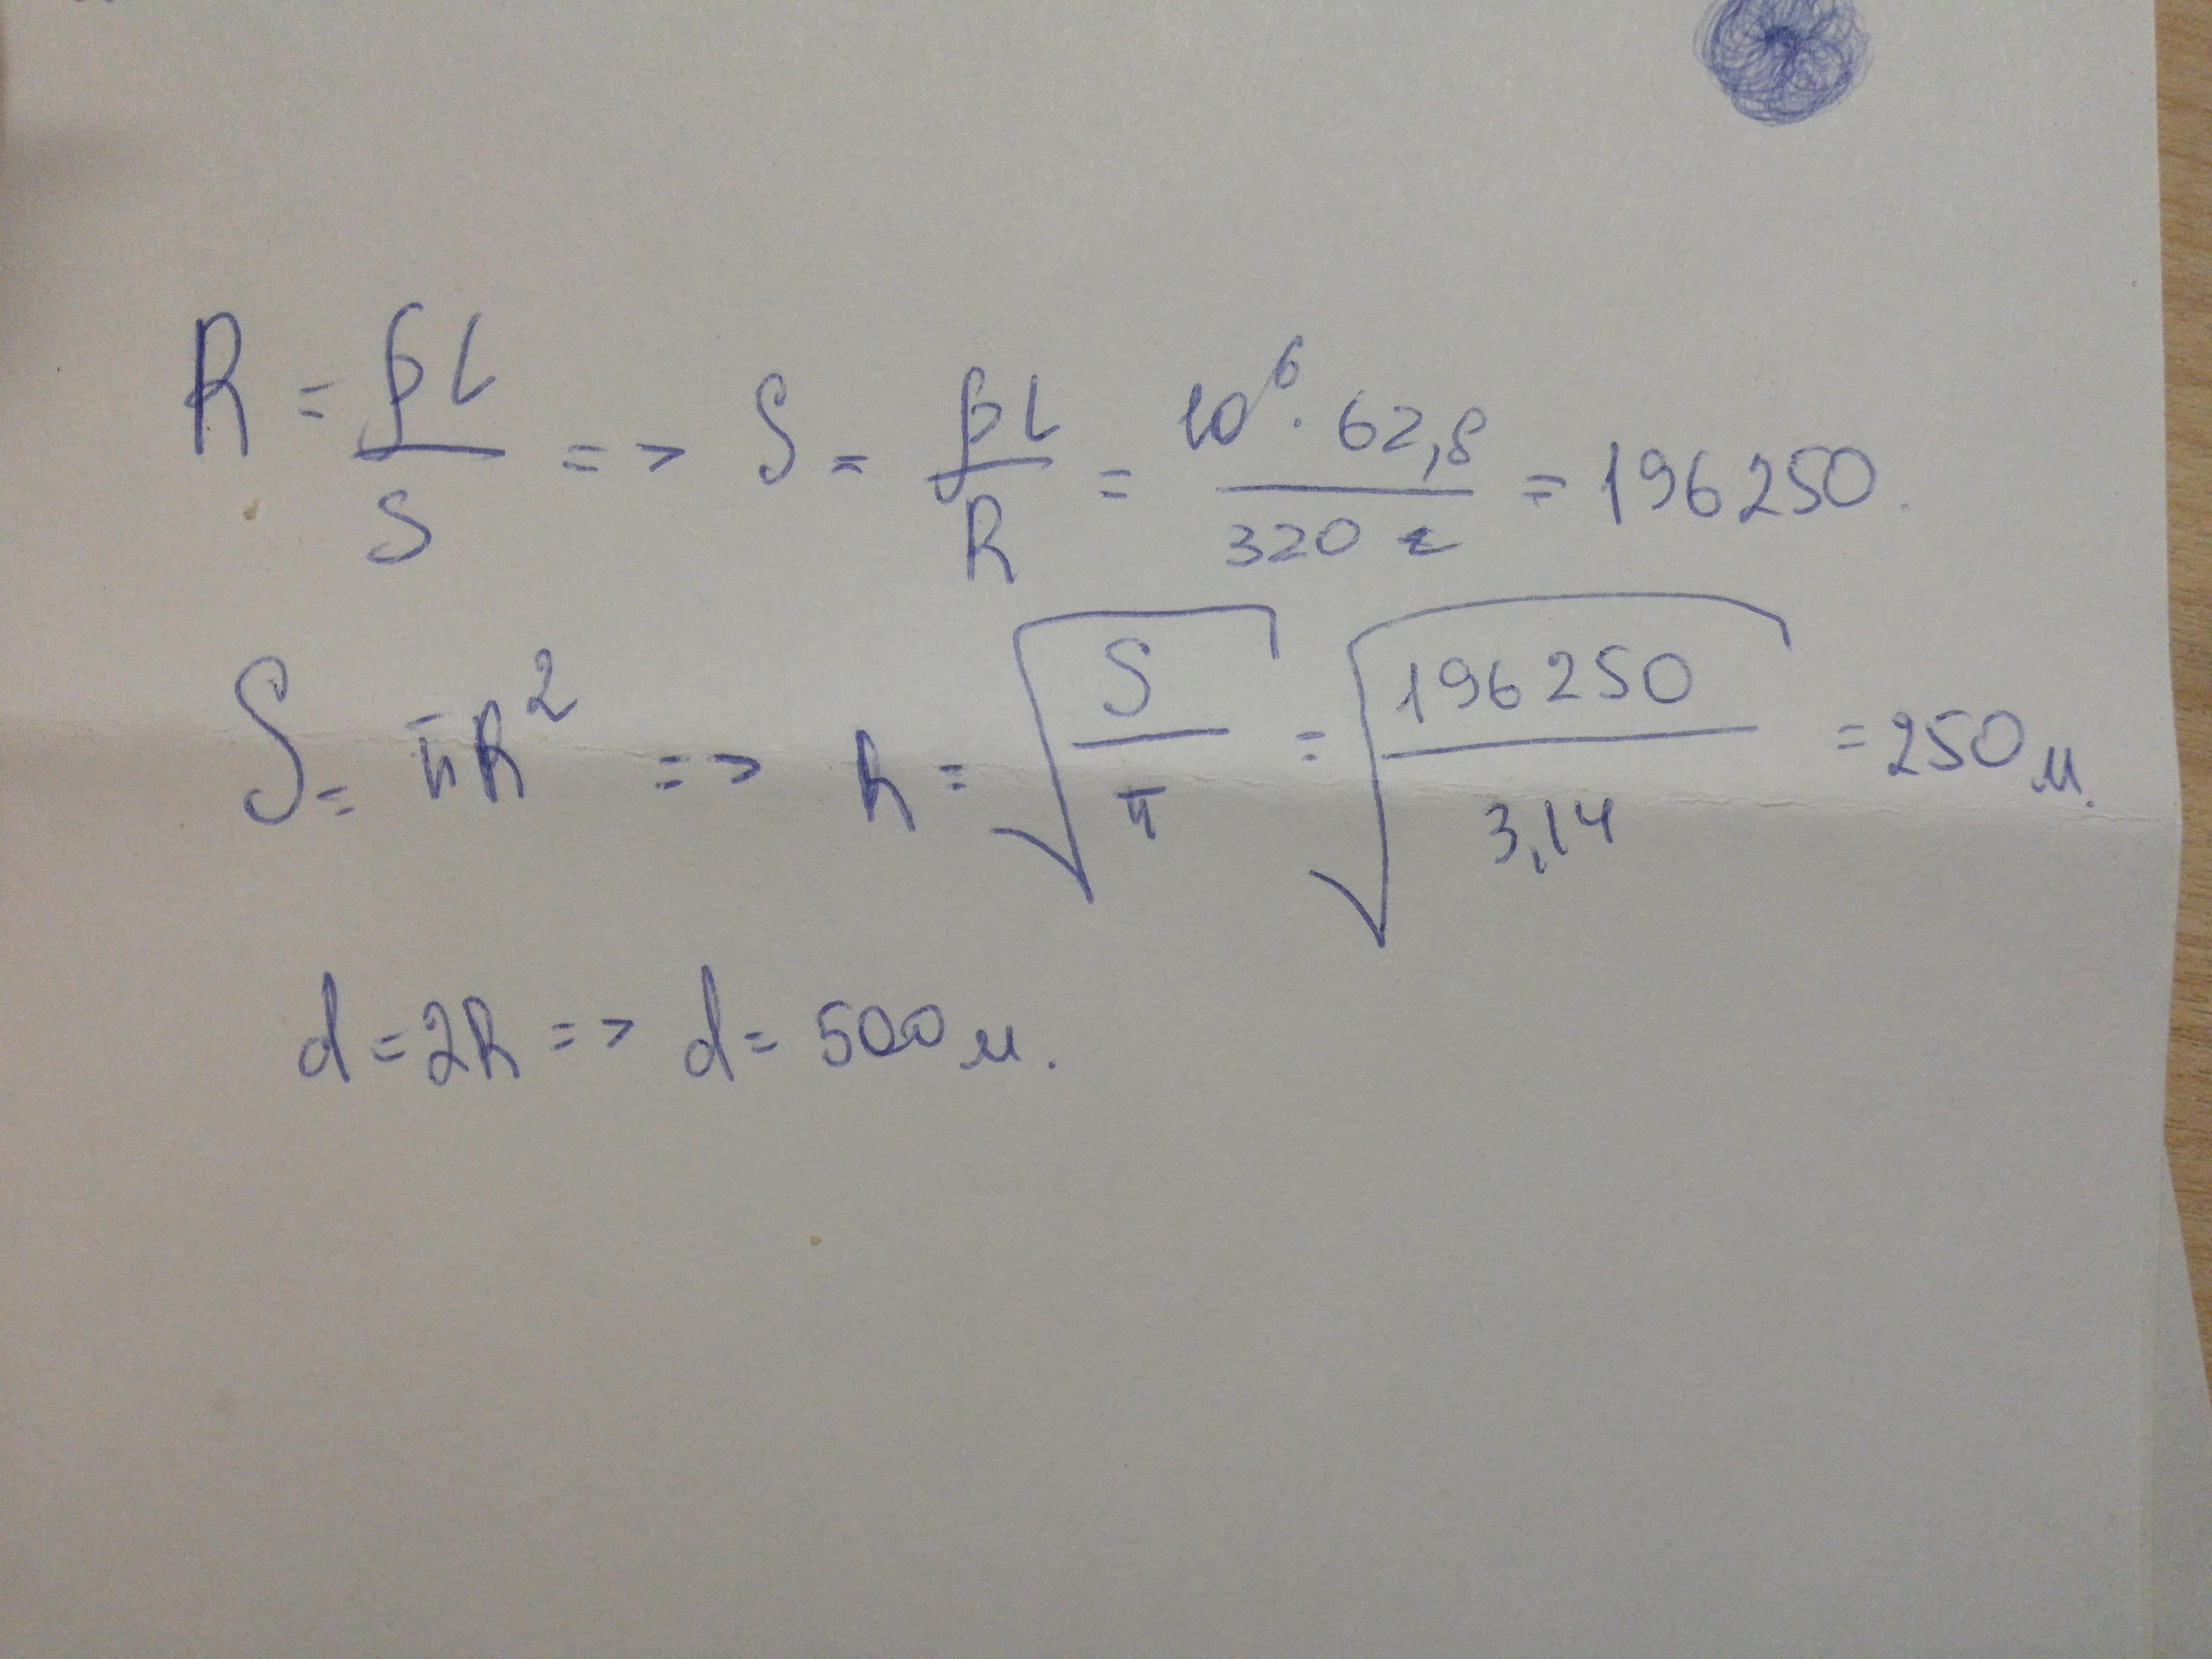 R = ρL/S => S = ρL/R = 10⁶ · 62,8/320 = 196250.
S = πR² => R = √(S/π) = √(196250/3,14) = 250 м.
d = 2R => d = 500 м.